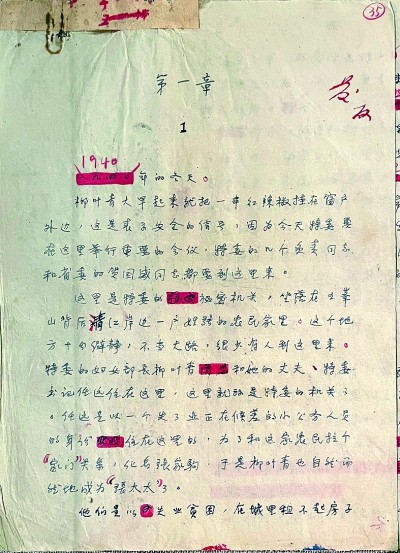 35
第一章
1
发、反
1940
年的冬天。
柳叶青大早起来就把一串红辣椒挂在窗户
外边，这是表示安全的信号，因为今天特委要
在这里举行重要的会议，特委的几个负责同志
和省委的贺国威同志都要到这里来。
这里是特委的秘密机关，坐落在五峯
山背后清江岸边一户姓的农民家里。这个地
方十分僻静，不当大路，很少有人到这里来。
特委的妇女部长柳叶青和她的丈夫、特委
书记任远住在这里，这里就算是特委的机关了
。任远是以一个失了业正在候差的小公务人员
的身份住在这里的，为了和这家农民拉个
“家门”关系，化名张敬驹，于是柳叶青也自然而
然地成为“張太太”了。
他们是以失业贫困，在城里租不起房子